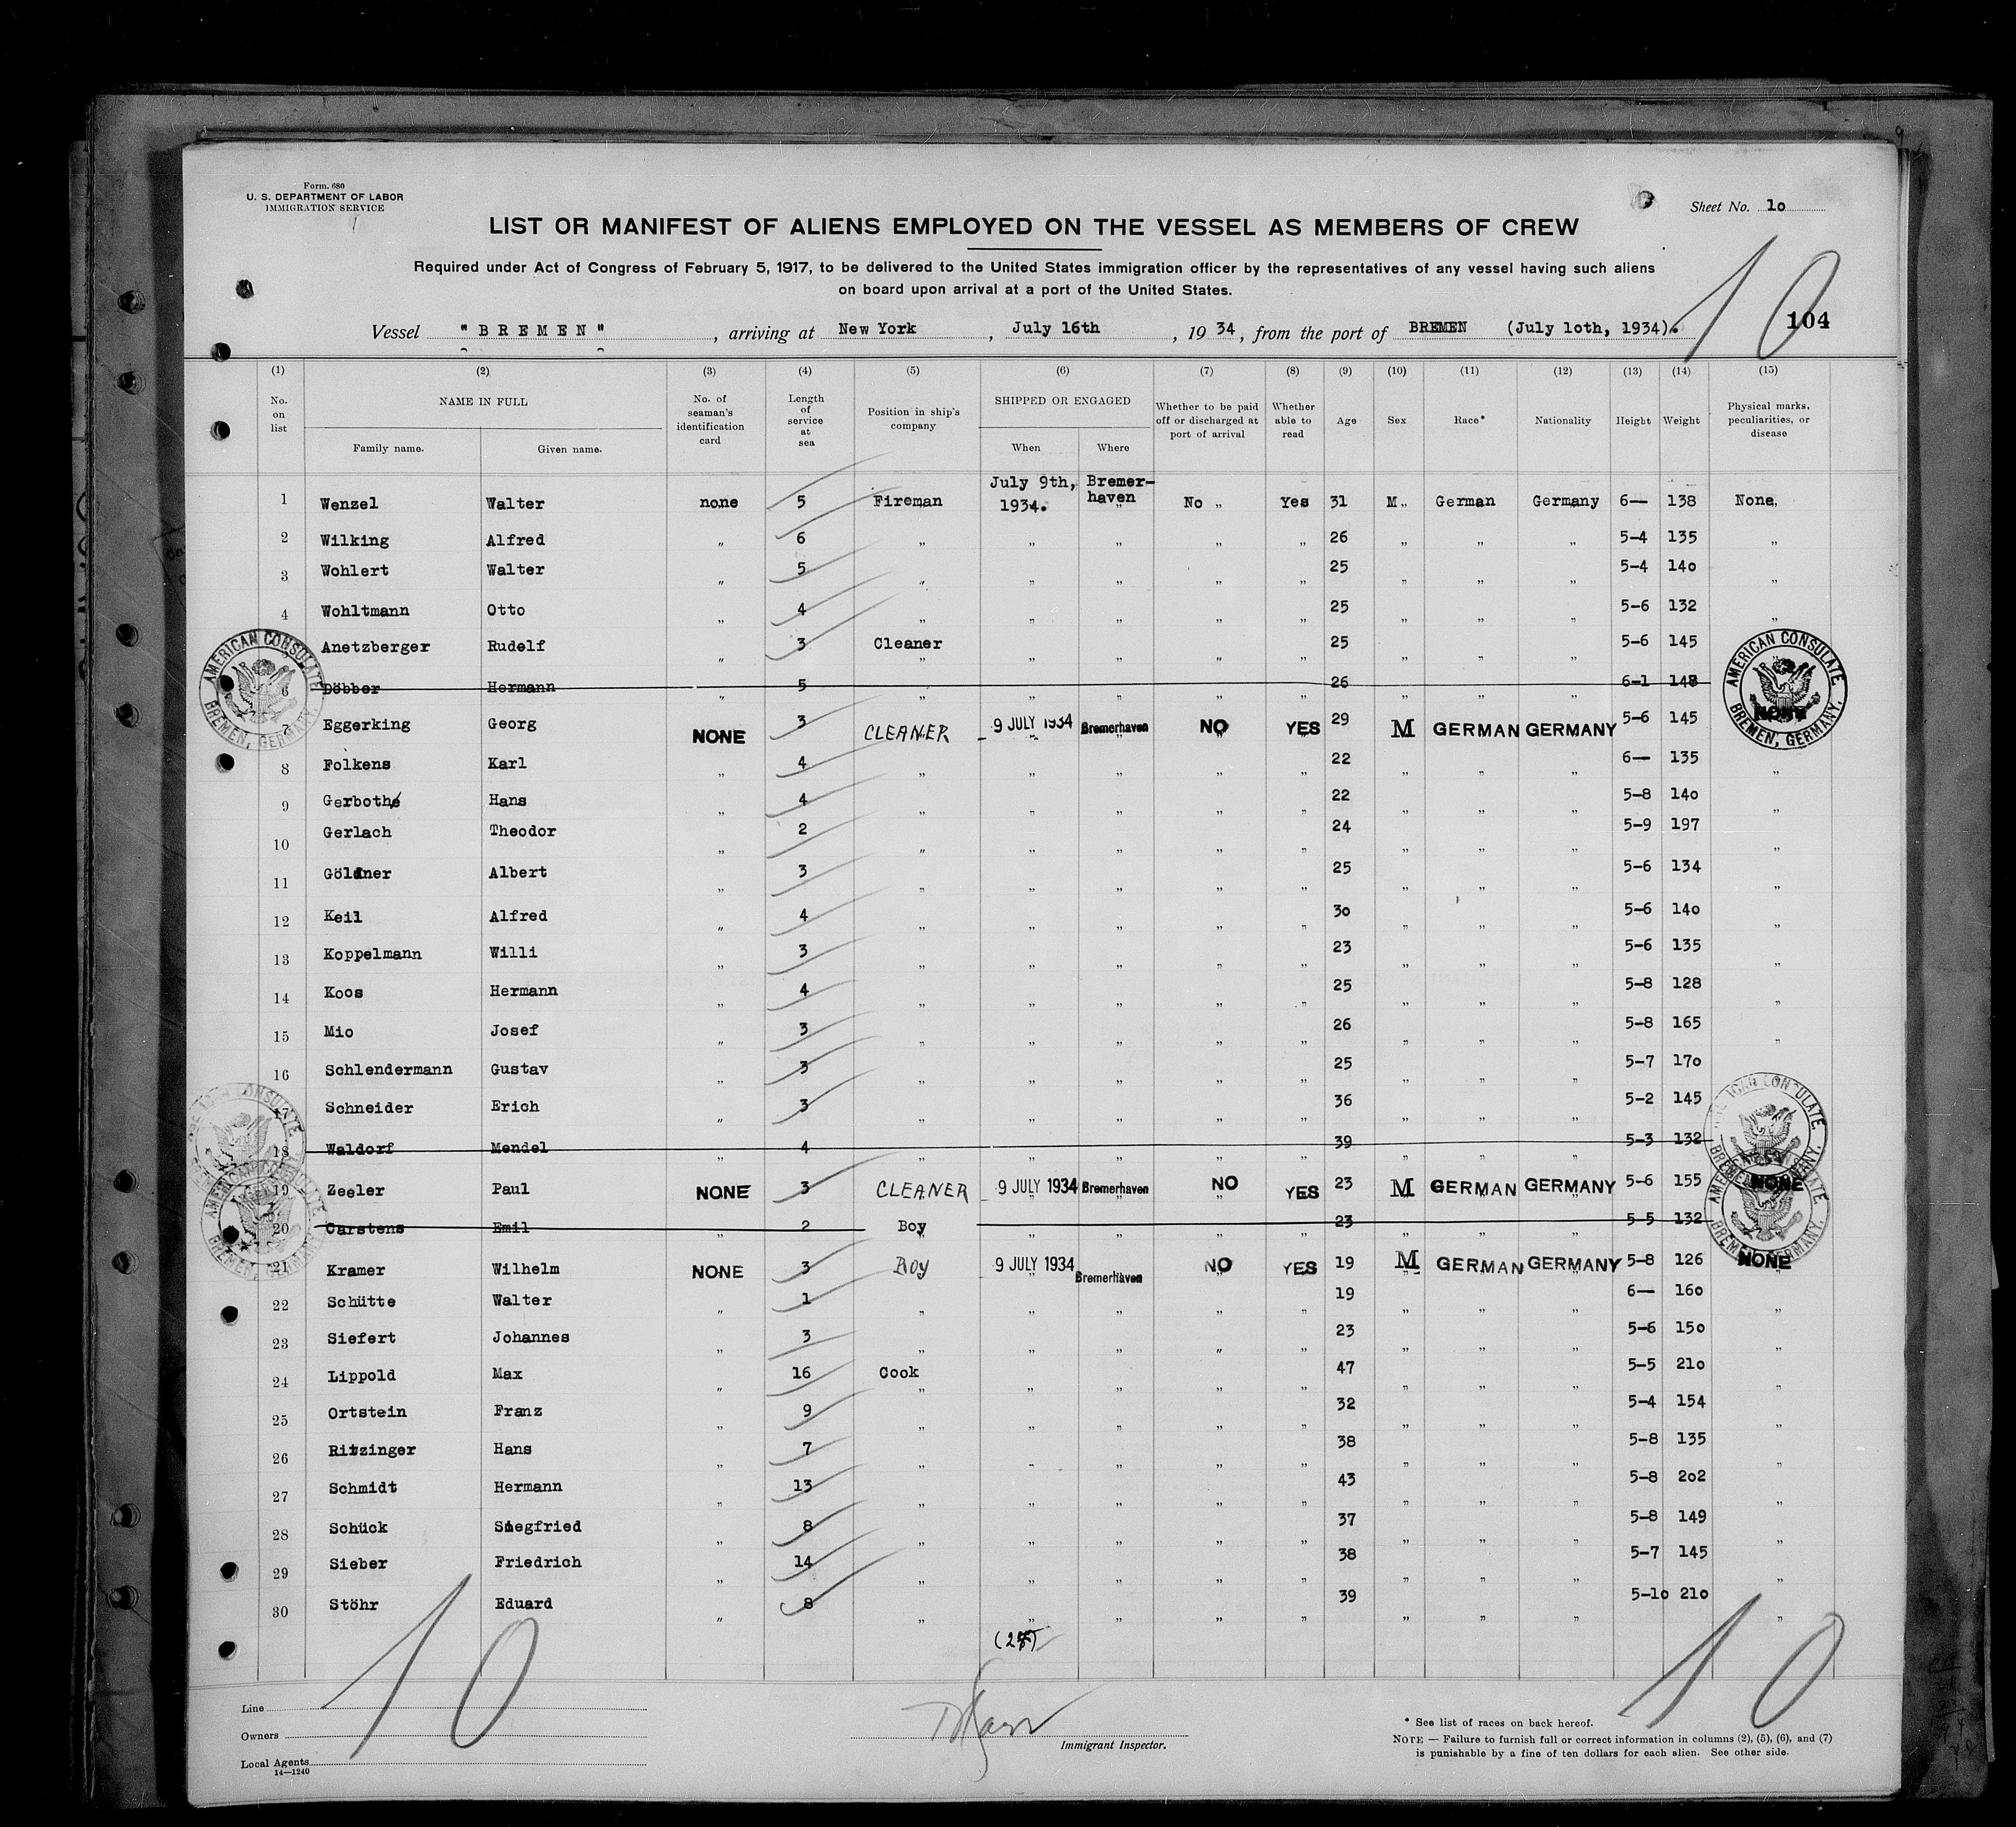 Form. 680
U. S. DEPARTMENT OF LABOR
IMMIGRATION SERVICE
Sheet No. 1o
LIST OR MANIFEST OF ALIENS EMPLOYED ON THE VESSEL AS MEMBERS OF CREW
Required under Act of Congress of February 5, 1917, to be delivered to the United States immigration officer by the representatives of any vessel having such aliens
on board upon arrival at a port of the United States.
10
104
Vessel "BREMEN", arriving at New York, July 16th, 19 34, from the port of BREMEN (July 1oth, 1934).
(1) (2) (3) (4) (5) (6) (7) (8) (9) (10) (11) (12) (13) (14) (15)
No. on list NAME IN FULL Family name. Given name. No. of seaman's identification card Length of service at sea Position in ship's company SHIPPED OR ENGAGED When Where Whether to be paid off or discharged at port of arrival Whether able to read Age Sex Race* Nationality Height Weight Physical marks, peculiarities, or disease
1 Wenzel Walter none 5 Fireman July 9th, 1934. Bremer-haven No " Yes 31 M " German Germany 6— 138 None
2 Wilking Alfred " 6 " " " " " 26 " " " 5-4 135 "
3 Wohlert Walter " 5 " " " " " 25 " " " 5-4 14o "
4 Wohltmann Otto " 4 " " " " " 25 " " " 5-6 132 "
Anetzberger Rudolf " 3 Cleaner " " " " 25 " " " 5-6 145
6 Döbber Hermann " 5 " " " " " 26 " " " 6-1 148
7 Eggerking Georg NONE 3 CLEANER 9 JULY 1934 Bremerhaven NO YES 29 M GERMAN GERMANY 5-6 145 NONE
8 Folkens Karl " 4 " " " " " 22 " " " 6— 135 "
9 Gerbothe Hans " 4 " " " " " 22 " " " 5-8 14o "
10 Gerlach Theodor " 2 " " " " " 24 " " " 5-9 197 "
11 Göldner Albert " 3 " " " " " 25 " " " 5-6 134 "
12 Keil Alfred " 4 " " " " " 3o " " " 5-6 14o "
13 Koppelmann Willi " 3 " " " " " 23 " " " 5-6 135 "
14 Koos Hermann " 4 " " " " " 25 " " " 5-8 128 "
15 Mio Josef " 3 " " " " " 26 " " " 5-8 165 "
16 Schlendermann Gustav " 3 " " " " " 25 " " " 5-7 17o
17 Schneider Erich " 3 " " " " " 36 " " " 5-2 145
18 Waldorf Mendel " 4 " " " " " 39 " " " 5-3 132
19 Zeeler Paul NONE 3 CLEANER 9 JULY 1934 Bremerhaven NO YES 23 M GERMAN GERMANY 5-6 155 NONE
20 Carstens Emil " 2 Boy " " " " 23 " " " 5-5 132
21 Kramer Wilhelm NONE 3 Boy 9 JULY 1934 Bremerhaven NO YES 19 M GERMAN GERMANY 5-8 126 NONE
22 Schütte Walter " 1 " " " " " 19 " " " 6— 16o "
23 Siefert Johannes " 3 " " " " " 23 " " " 5-6 15o "
24 Lippold Max " 16 Cook " " " " 47 " " " 5-5 21o "
25 Ortstein Franz " 9 " " " " " 32 " " " 5-4 154 "
26 Ritzinger Hans " 7 " " " " " 38 " " " 5-8 135 "
27 Schmidt Hermann " 13 " " " " " 43 " " " 5-8 2o2 "
28 Schück Siegfried " 8 " " " " " 37 " " " 5-8 149 "
29 Sieber Friedrich " 14 " " " " " 38 " " " 5-7 145 "
30 Stöhr Eduard " 8 " " " " " 39 " " " 5-1o 21o "
AMERICAN CONSULATE
BREMEN, GERMANY.
AMERICAN CONSULATE
BREMEN, GERMANY.
(27)
10
10
Line
Owners
Local Agents
14—1240
Immigrant Inspector.
* See list of races on back hereof.
NOTE — Failure to furnish full or correct information in columns (2), (5), (6), and (7)
is punishable by a fine of ten dollars for each alien. See other side.